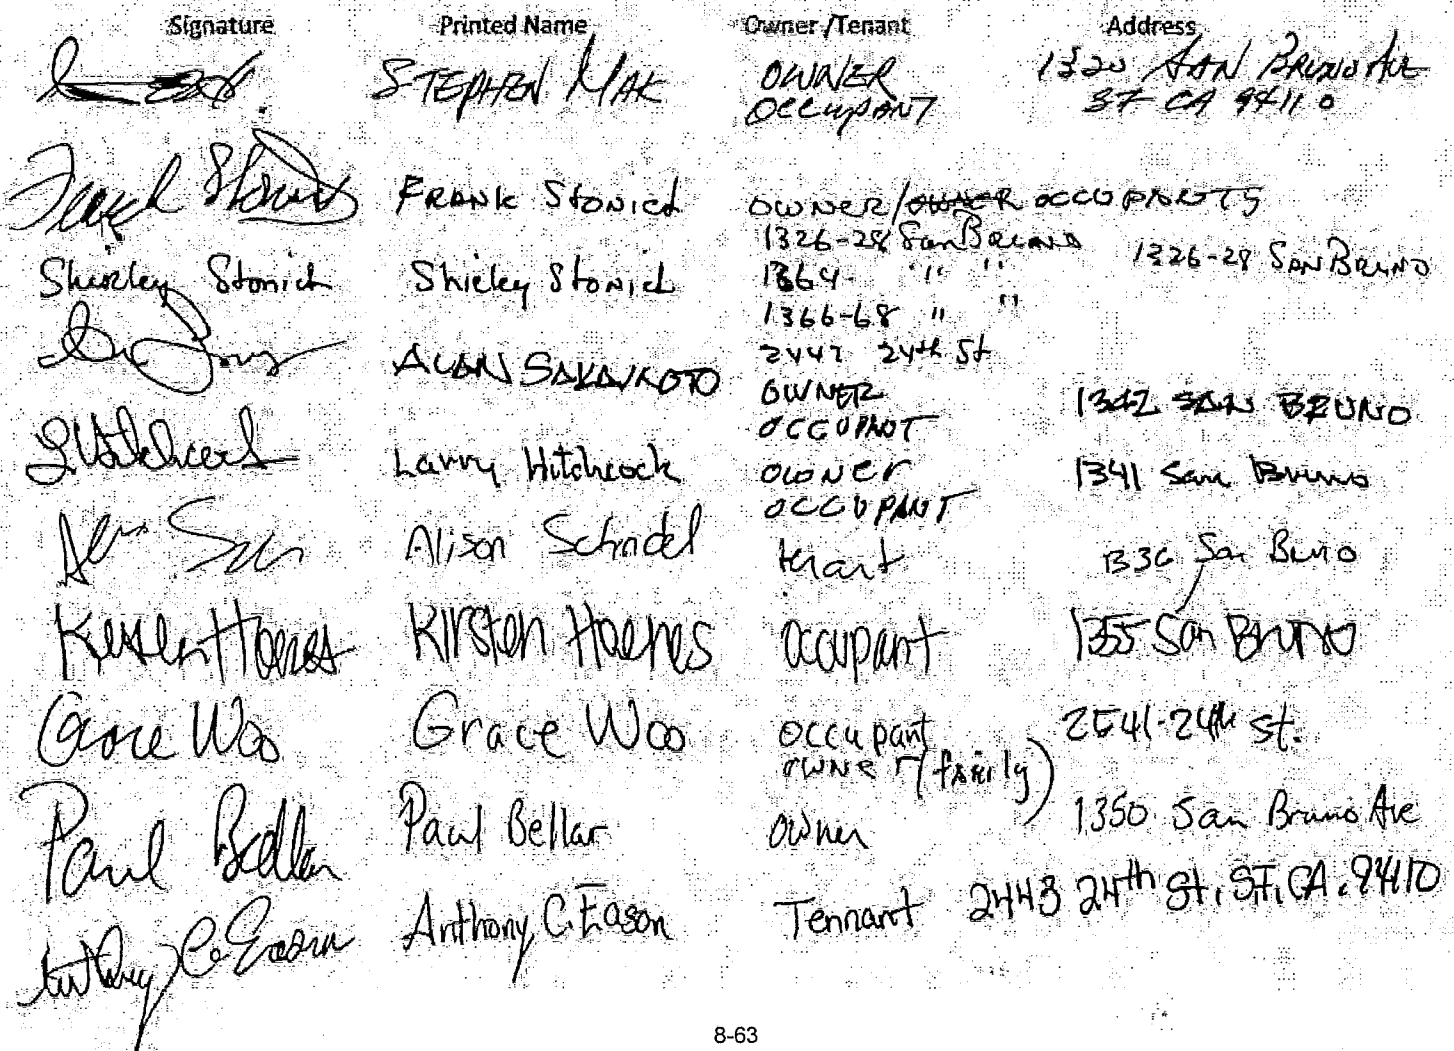 Signature Printed Name Owner/Tenant Address
STEPHEN MAK OWNER 1320 SAN BRUNO AVE
OCCUPANT SF CA 94110
Frank Stonich FRANK Stonich OWNER/OWNER OCCUPANTS
1326-28 San Bruno 1326-28 SAN BRUNO
Shirley Stonich Shirley Stonich 1364- " "
1366-68 " "
ALAN SAKAMOTO 2447 24th St
OWNER 1342 SAN BRUNO
OCCUPANT
L Hitchcock Larry Hitchcock OWNER 1341 San Bruno
OCCUPANT
Alison Schridel tenant 1336 San Bruno
Kirsten Hoenes Kirsten Hoenes Occupant 1355 San Bruno
Grace Woo Grace Woo Occupant 2541-24th St.
OWNER (family)
Paul Bellar Paul Bellar Owner 1350 San Bruno Ave
Anthony C. Eason Anthony C. Eason Tennant 2443 24th St, SF, CA. 94110
8-63